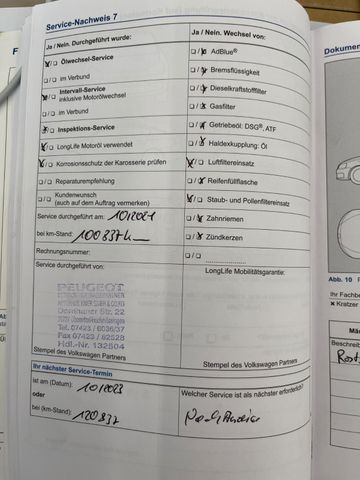 Service-Nachweis 7
Ja / Nein. Durchgeführt wurde:
Ölwechsel-Service
im Verbund
Intervall-Service
inklusive Motorölwechsel
im Verbund
Inspektions-Service
LongLife Motoröl verwendet
Korrosionsschutz der Karosserie prüfen
Reparaturempfehlung
Kundenwunsch
(auch auf dem Auftrag vermerken)
Service durchgeführt am: 10/2021
bei km-Stand: 100837 km
Rechnungsnummer:
Service durchgeführt von:
PEUGEOT
Dornhaner Str. 22
Tel. 07423 /
Fax 07423 /
Hdl.-Nr. 132504
Stempel des Volkswagen Partners
Ja / Nein. Wechsel von:
AdBlue®
Bremsflüssigkeit
Dieselkraftstofffilter
Gasfilter
Getriebeöl: DSG®, ATF
Haldexkupplung: Öl
Luftfiltereinsatz
Reifenfüllflasche
Staub- und Pollenfiltereinsatz
Zahnriemen
Zündkerzen
LongLife Mobilitätsgarantie:
Stempel des Volkswagen Partners
Ihr nächster Service-Termin
ist am (Datum): 10/2023
oder
bei (km-Stand): 120837
Welcher Service ist als nächster erforderlich?
Nach Anzeige
Dokumen
Abb. 10
Ihr Fachbe
× Kratzer
Mä
Beschreib
Rost